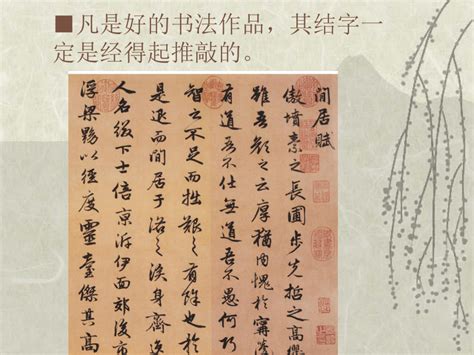 ■凡是好的书法作品，其结字一
定是经得起推敲的。
閒居賦
傲墳素之長圃步先哲之高
雖吾顔之云厚猶内愧於甯
有道吾不仕無道吾不愚何巧
智之不足而拙艱之有餘也於
是退而閒居于洛之涘身齊逸
人名綴下士倍京泝伊面郊後市
浮梁黝以徑度靈臺傑其高